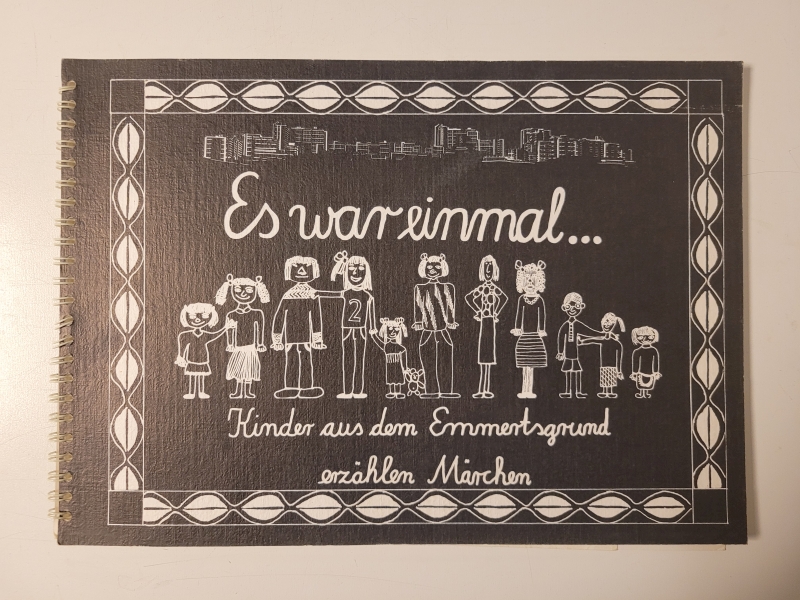 Es war einmal...
2
Kinder aus dem Emmertsgrund
erzählen Märchen